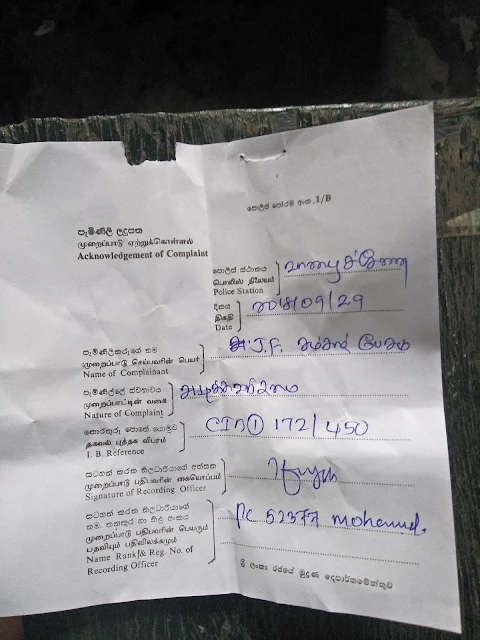 පොලිස් පෝරම අංක. 1/B
පැමිණිලි ලදුපත
முறைப்பாடு ஏற்றுக்கொள்ளல்
Acknowledgement of Complaint
පොලිස් ස්ථානය
பொலிஸ் நிலையம்
Police Station
දිනය
திகதி
Date
2018/09/29
පැමිණිලිකරුගේ නම
முறைப்பாடு செய்பவரின் பெயர்
Name of Complainant
J.F.
පැමිණිල්ලේ ස්වභාවය
முறைப்பாட்டின் வகை
Nature of Complaint
තොරතුරු පොතේ යොමුව
தகவல் புத்தக விபரம்
I. B. Reference
CIB① 172/450
සටහන් කරන නිලධාරියාගේ අත්සන
முறைப்பாடு பதிபவரின் கையொப்பம்
Signature of Recording Officer
සටහන් කරන නිලධාරියාගේ
නම, තනතුර හා නිළ අංකය
முறைப்பாடு பதிபவரின் பெயரும்
பதவியும் பதிவிலக்கமும்
Name Rank & Reg. No. of
Recording Officer
PC 52577 Mohamed.
ශ්‍රී ලංකා රජයේ මුද්‍රණ දෙපාර්තමේන්තුව